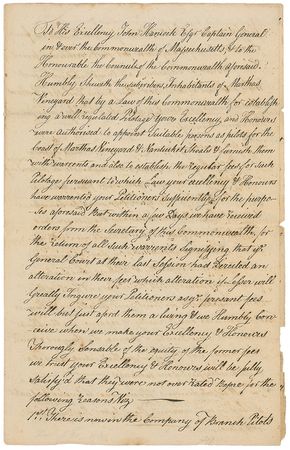 To His Excellency John Hancock Esqr Captain General
in & over the Commonwealth of Massachusetts, & to the
Honourable the Council of the Commonwealth aforesaid.
Humbly Sheweth the Subscribers, Inhabitants of Marthas
Vineyard that by a Law of this Commonwealth for establish
ing a well regulated Pilotage Your Excellency, and Honours
were authorised to appoint suitable persons as pilots for the
Coast of Marthas Vineyard & Nantucket Shoals & furnish them
with warrents and also to establish the regular fees for such
Pilotage pursuant to which Law your Excellency & Honours
have warrented your Petitioners for the purpo-
ses aforesaid But within a few Days we have received
orders from the Secretary of this Commonwealth, for
the return of all such warrents Signifying that ye
General Court at their last Session had Directed an
alteration in there fees which alteration if Lower will
Greatly Injure your Petitioners as yr. present fees
will but just aford them a living & we Humbly Con-
ceive when we make your Excellency & Honours
Thoroughly Sensable of the equity of the former fees
we trust your Excellency & Honours will be fully
Satisfy'd that they were not over Rated for the
following reasons Viz
1st There is now in the Company of Branch Pilots